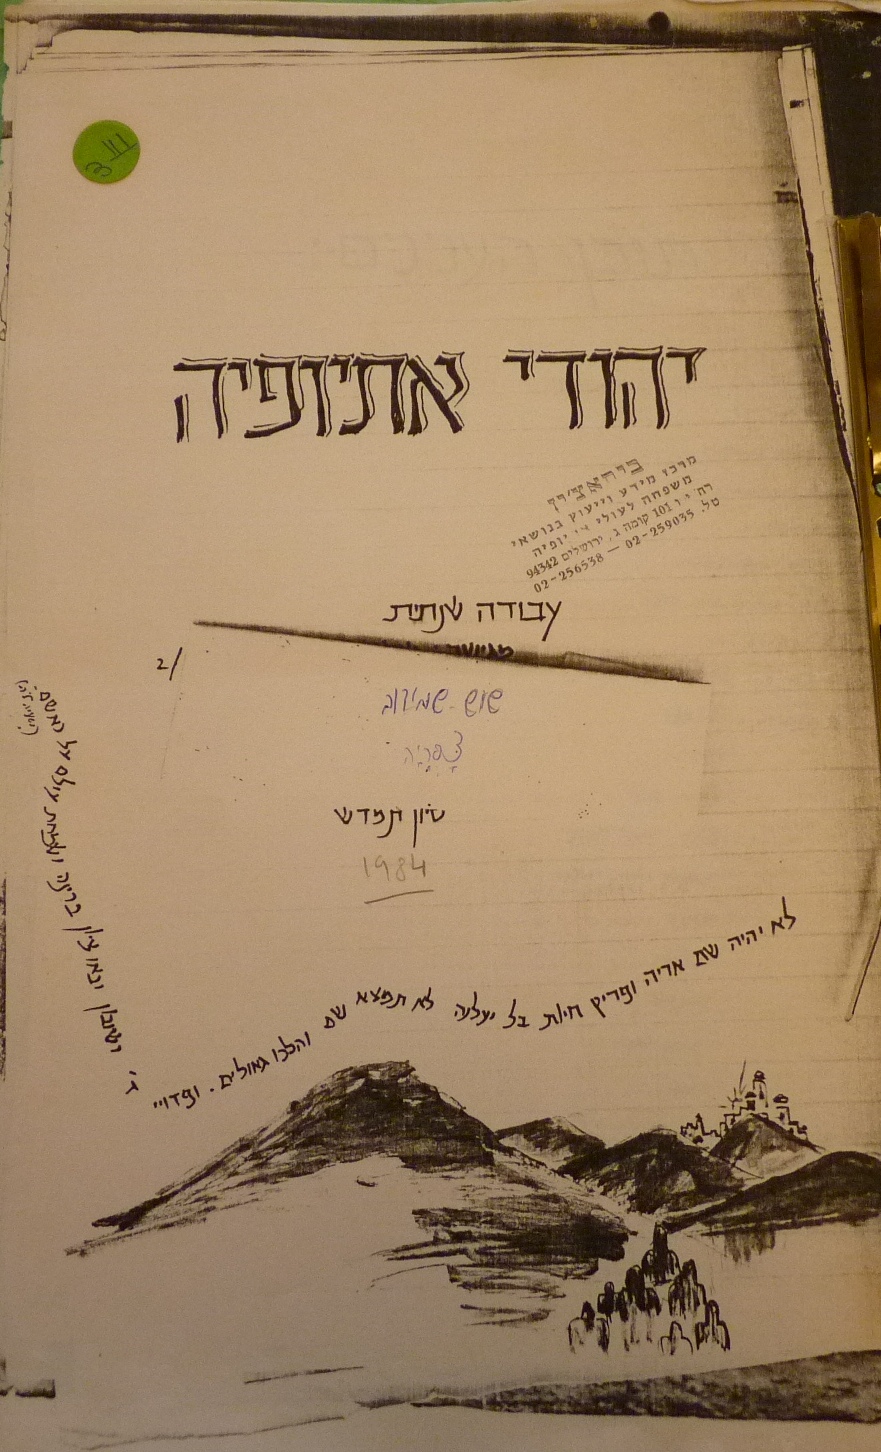 III
3
יהודי אתיופיה
מרכז מידע וייעוץ בנושאי
משפחה לעולי יופיה
רח' 101 קומה ג, ירושלים 94342
טל. 02-259035 — 02-256538
עבודה שנתית
מגישה
שוש
2/
סיון תמדש
1984
לא יהיה שם אריה ופריץ חיות בל יעלנה לא תמצא שם והלכו גאולים. ופדויי
ה' ישובון ובאו ציון ברינה ושמחת עולם על ראשם